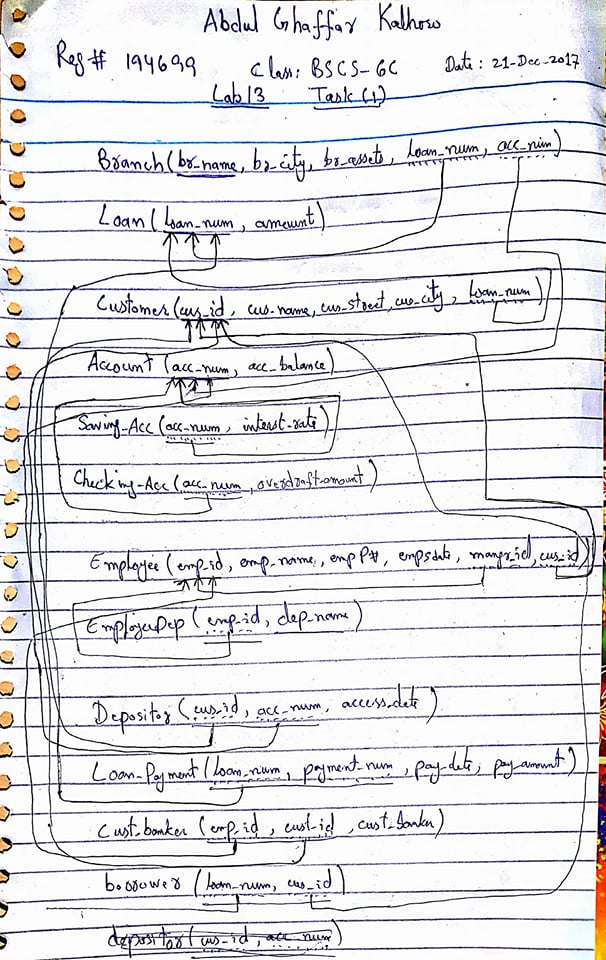 Abdul Ghaffar Kalhoro
Reg# 194699 Class: BSCS-6C Date: 21-Dec-2017
Lab 13 Task(1)
Branch(br_name, br_city, br_assets, loan_num, acc_num)
Loan(loan_num, amount)
Customer(cus_id, cus_name, cus_street, cus_city, loan_num)
Account (acc_num, acc_balance)
Saving_Acc(acc_num, interst_rate)
Checking-Acc(acc_num, overdraft-amount)
Employee (emp_id, emp_name, emp P#, empsdate, mangr_id, cus_id)
EmployeeDep (emp_id, dep_name)
Depositor (cus_id, acc_num, access_date)
Loan-Payment(loan_num, payment_num, pay-date, pay_amount)
Cust_banker (emp_id, cust_id, cust_banker)
borrower (loan_num, cus_id)
depositor(cus_id, acc_num)